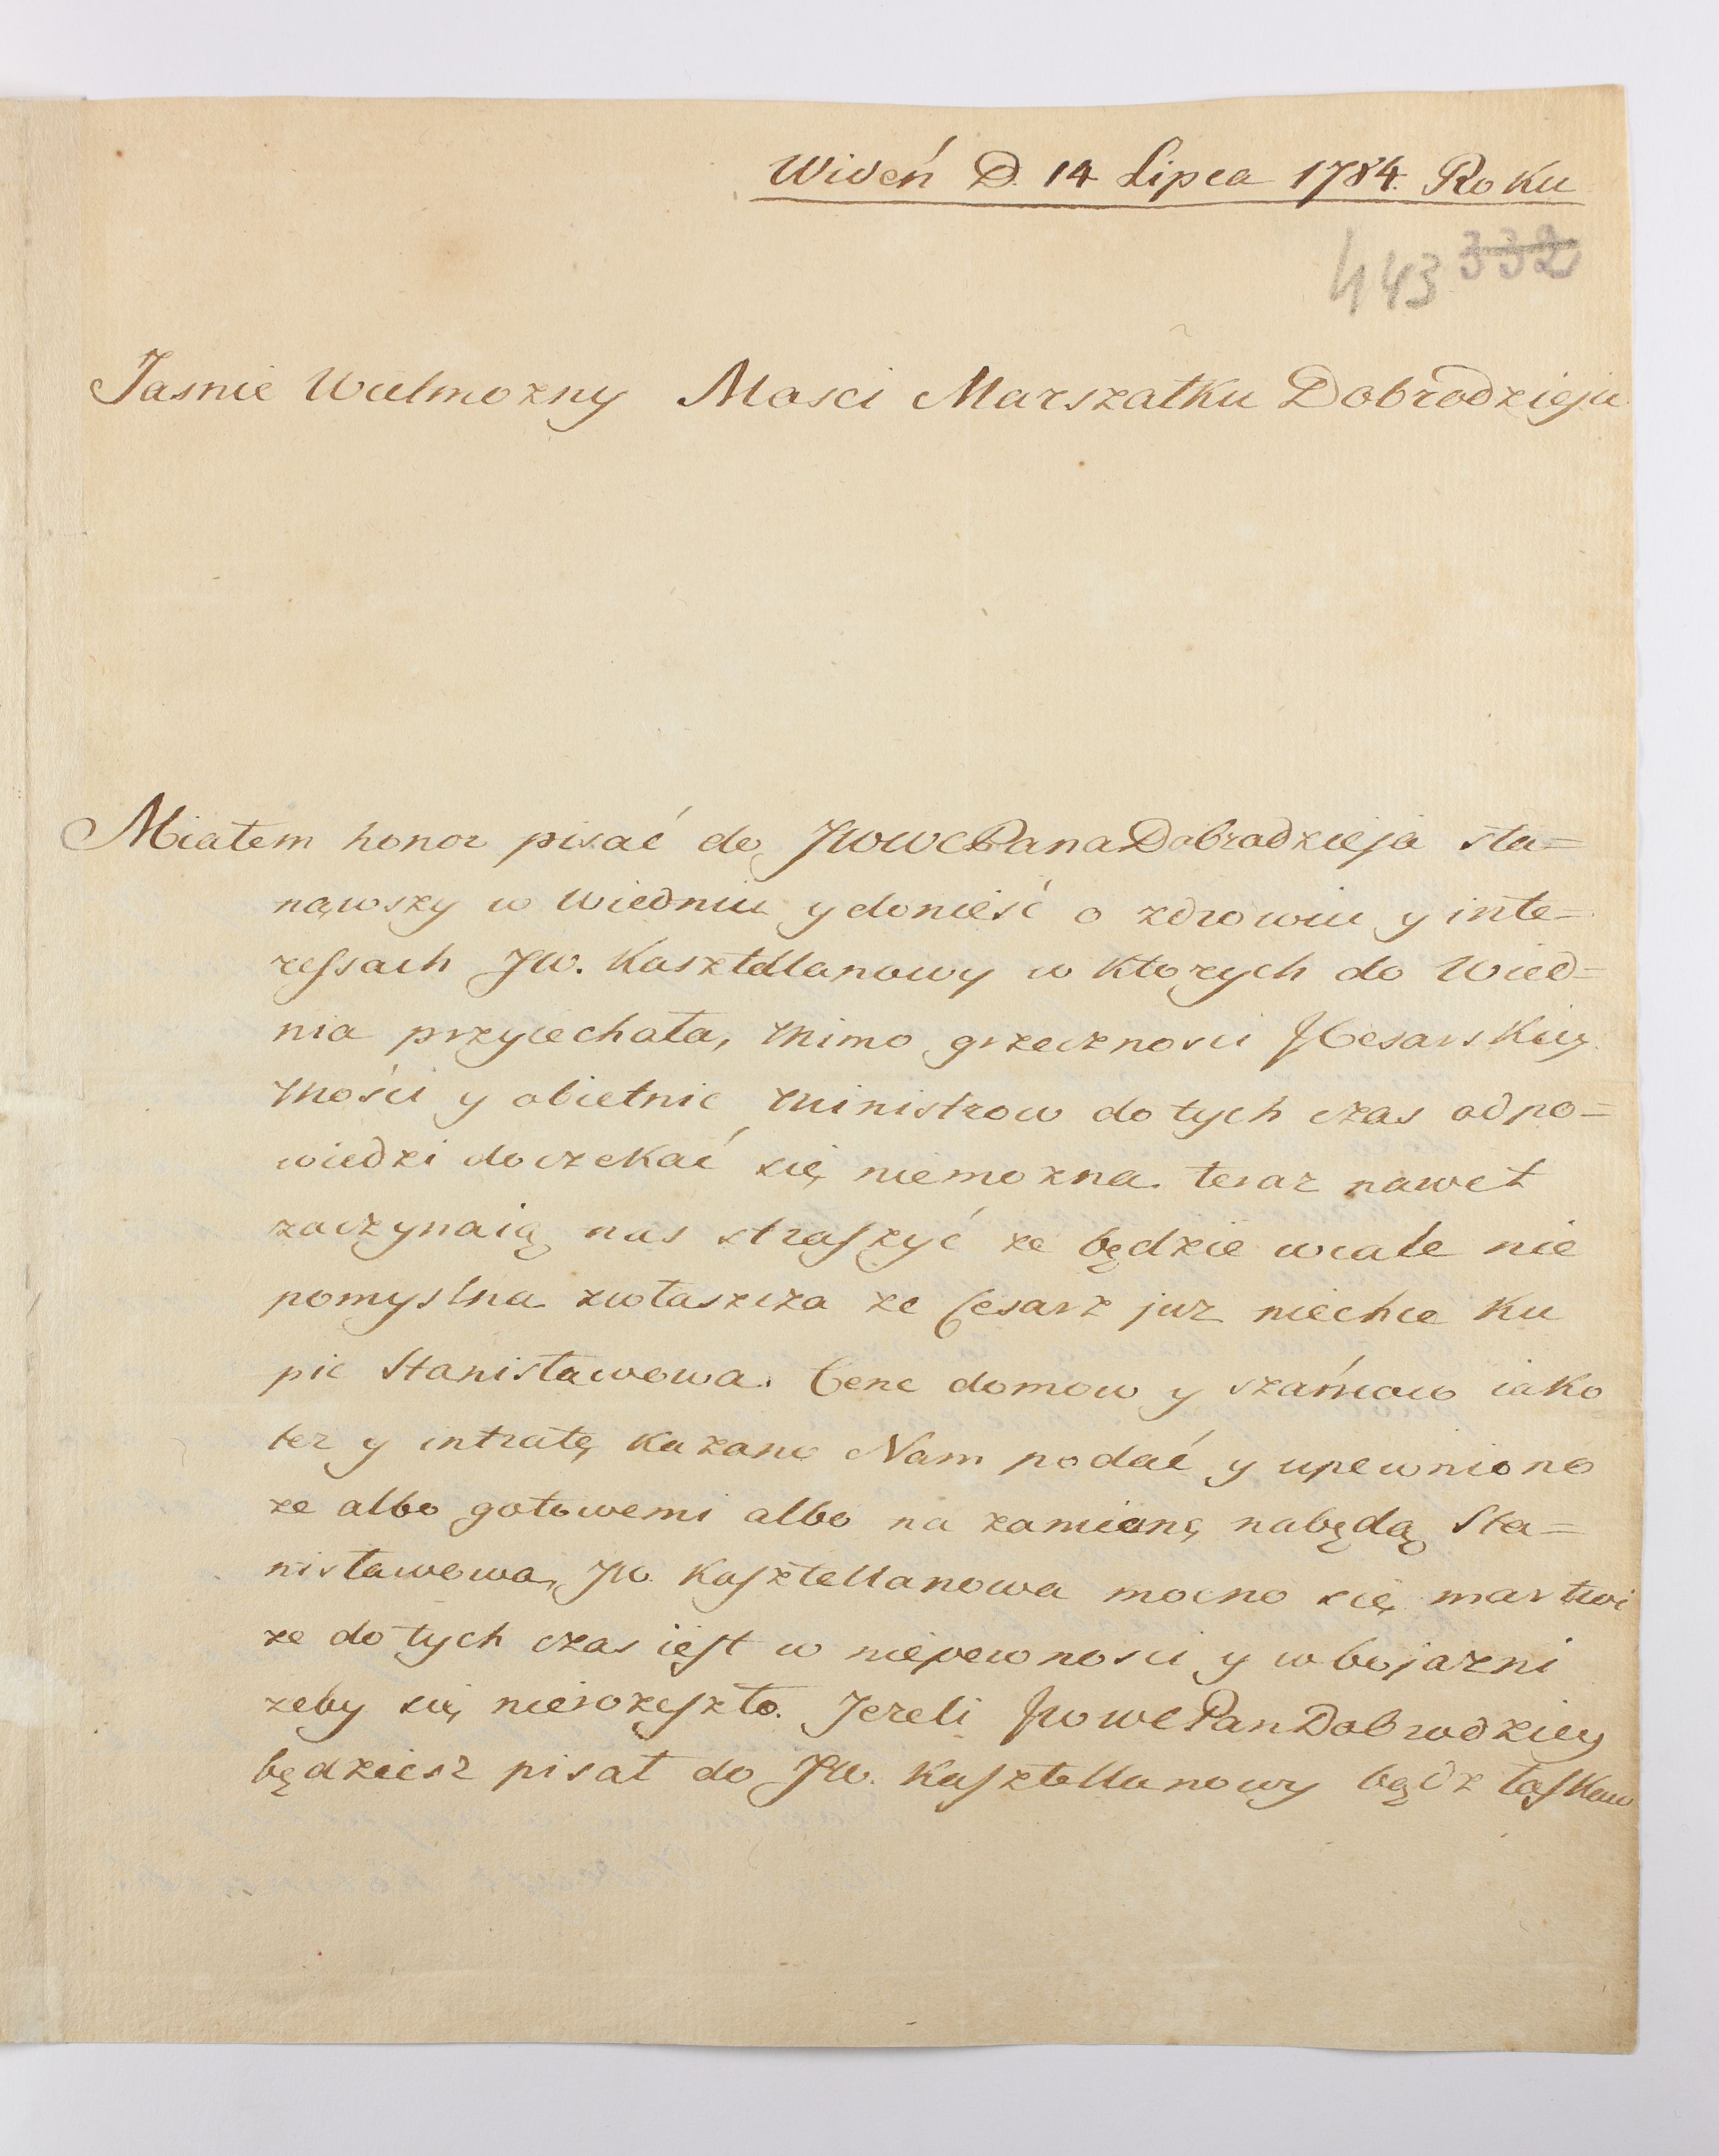 Wideń D. 14 Lipca 1784. Roku
443 332
Jasnie Wielmozny Mosci Marszałku Dobrodzieju
Miałem honor pisać do JWWCPana Dobrodzieja sta=
nąwszy w Wiedniu y donieść o zdrowiu y inte=
ressach JW. Kasztellanowy w ktorych do Wied=
nia przyiechała, mimo grzecznosci JCesarskiey
Mości y obietnic Ministrow do tych czas odpo=
wiedzi doczekać się niemozna. teraz nawet
zaczynaią nas straszyć ze będzie wcale nie
pomyslna zwłaszcza ze Cesarz juz niechce ku
pic Stanisławowa. Cene domow y szańcow iako
tez y intratę kazano Nam podać y upewniono
ze albo gotowemi albo na zamianę nabędą Sta=
nisławowa, JW. Kasztellanowa mocno się martwi
ze do tych czas iest w niepewnosci y w bojazni
zeby się nierozeszło. Jezeli JWWCPan Dobrodziey
będziesz pisał do JW. Kasztellanowy bądz łaskaw